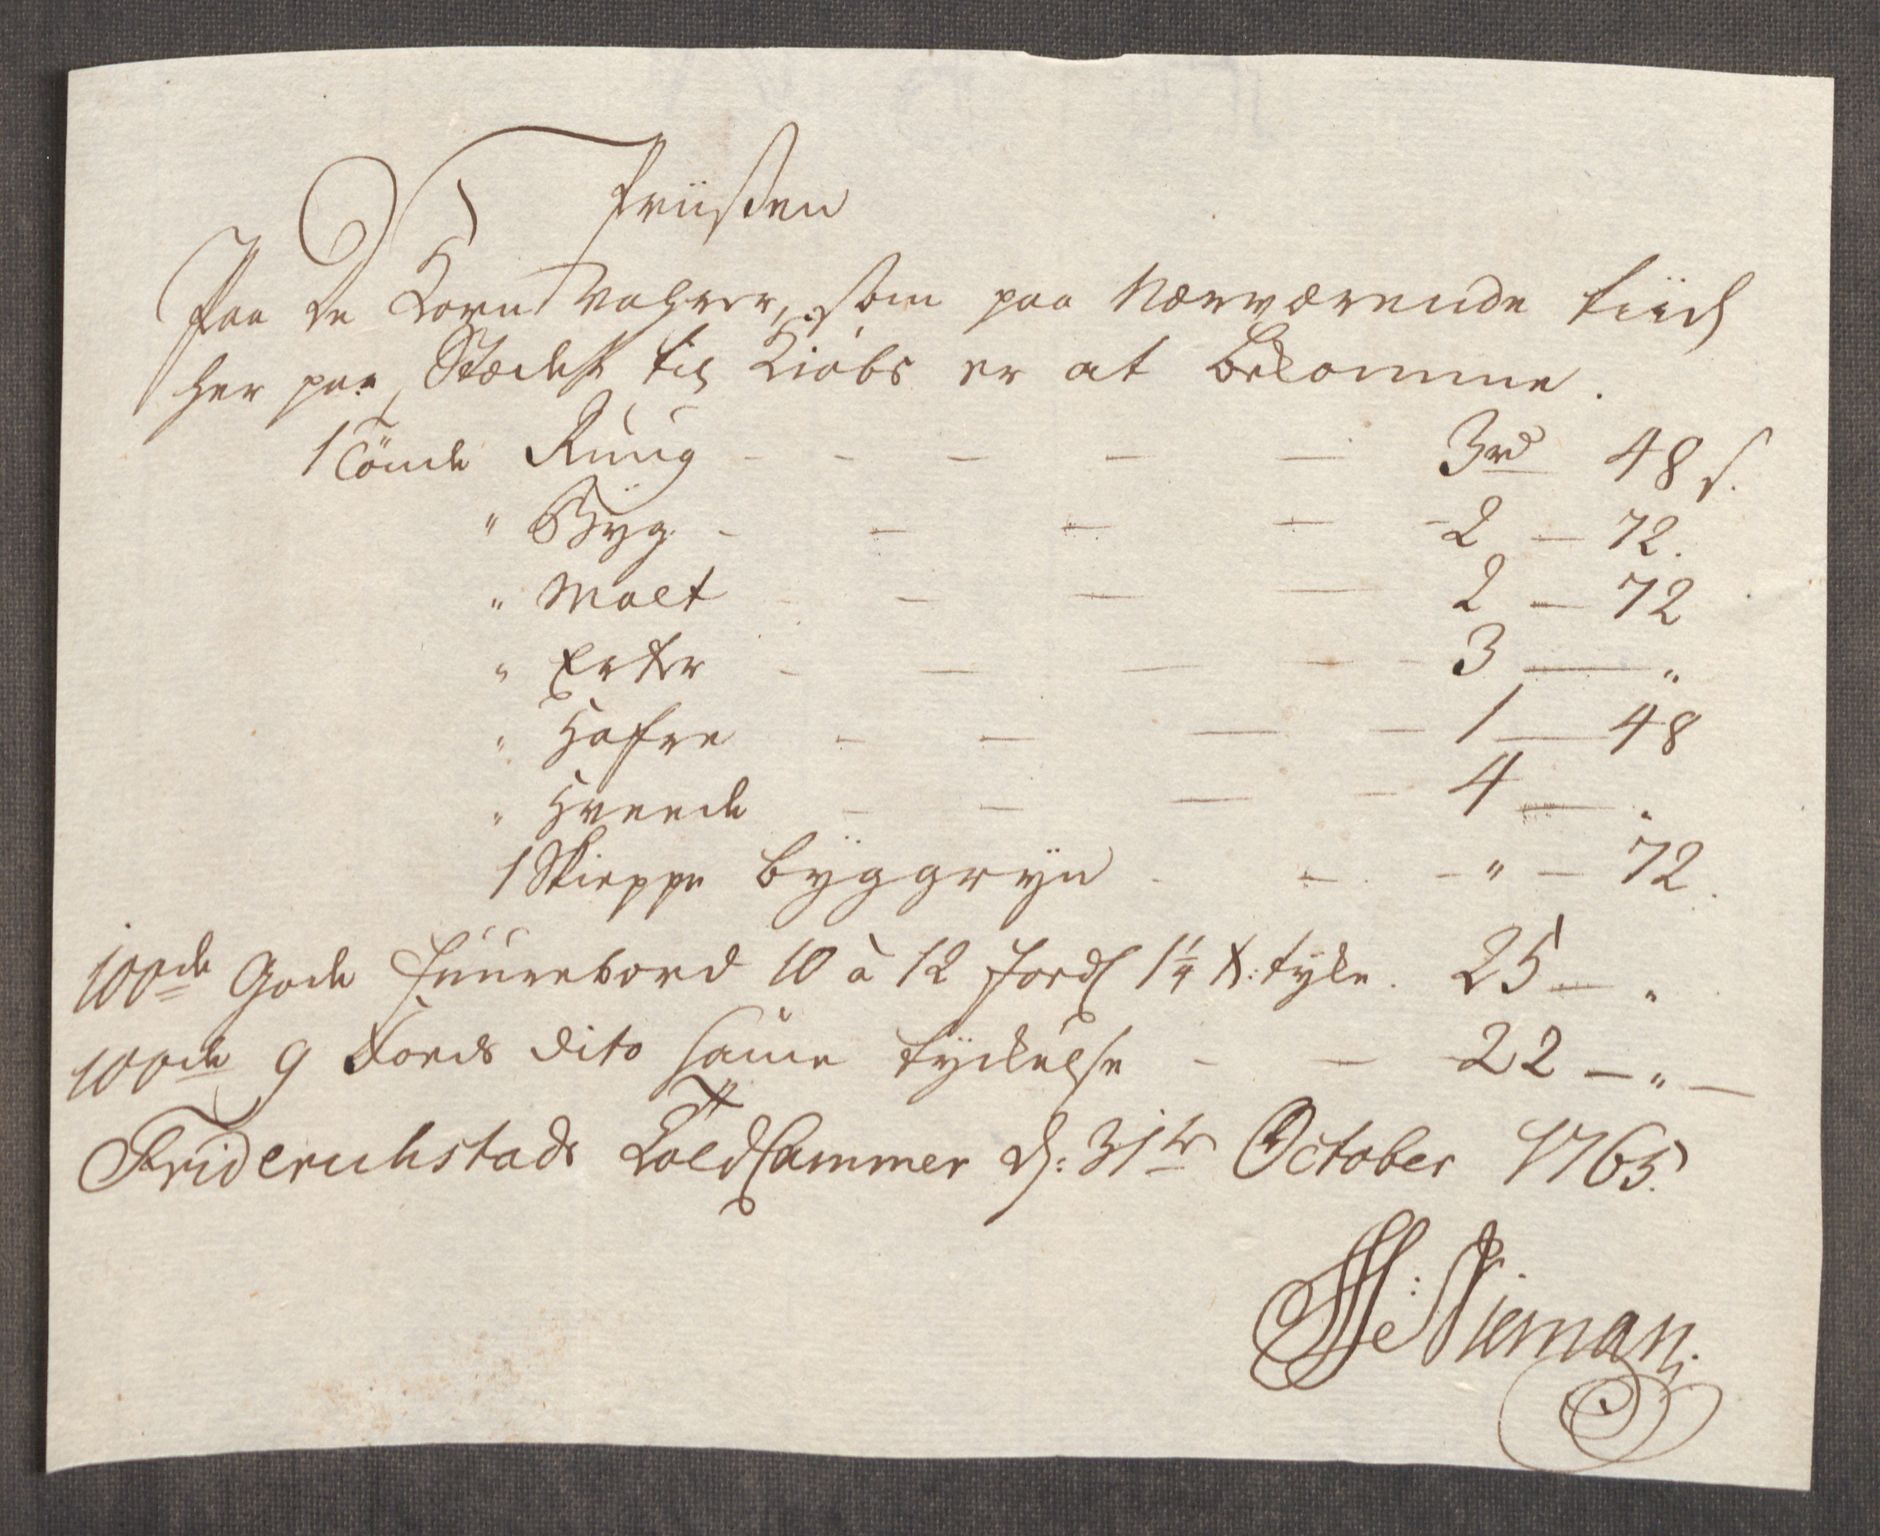 Priisen
Paa de Korn Vahrer, som paa Nærværende tiid
her paa Stædet til Kiøbs er at bekomme.
1 Tönde Ruug - - - - - 3 rd 48 s.
" Byg - - - - - 2 - 72.
" Malt - - - - 2 - 72
" Erter - - - - - 3 - "
" Hafre - - - - - 1 - 48
" Hveede - - - - - 4 - "
1 Skieppe byggryn - - - " - 72.
100de Gode Fuurebord 10 à 12 Fods 1 1/4 t: tyke. 25 - "
100de 9 Foeds dito same tyckelse - - - 22 - " -
Friderichstads Told Cammer d: 31te October 1765.
Nieman.